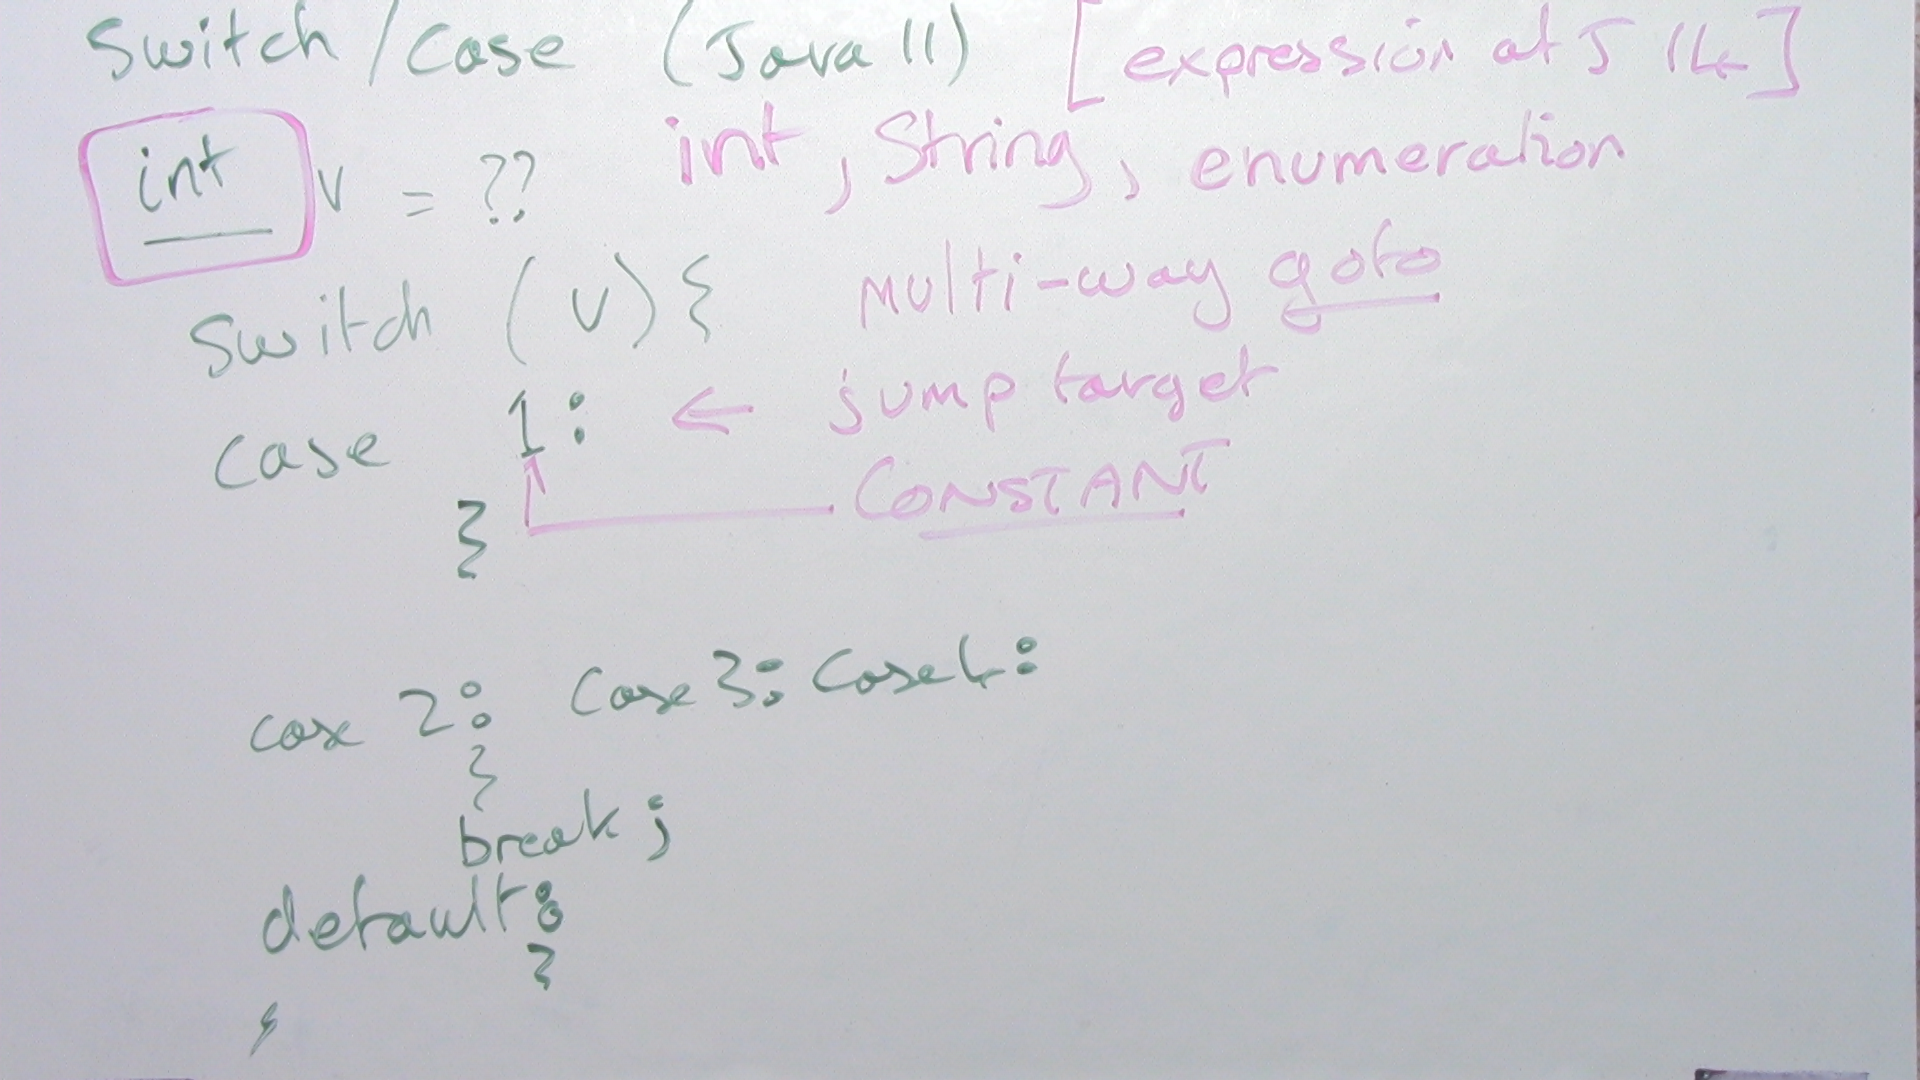 Switch / Case (Java 11) [expression at J 14]
int v = ?? int, String, enumeration
Switch (v) { multi-way goto
case 1: ← jump target
} CONSTANT
case 2: Case 3: Case 4:
}
break;
default:
}
}